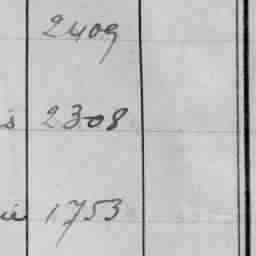 2409
s 2308
1753